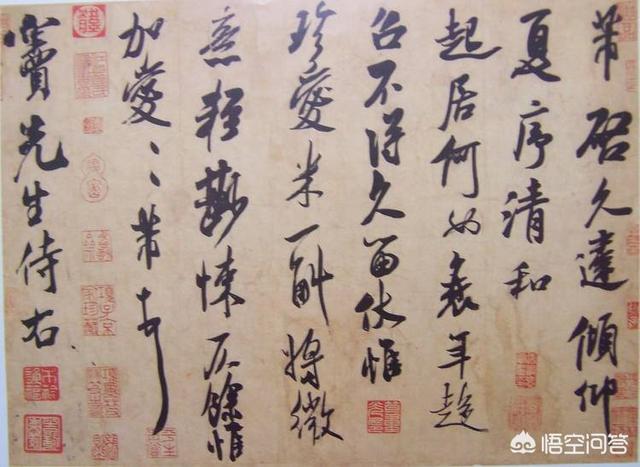 芾啟久違傾仰
夏序清和
起居何如衰年趨
召不得久留伏惟
珍愛米一斛將微
意輕尠悚仄餘惟
加愛〻芾頓首
竇先生侍右
悟空问答